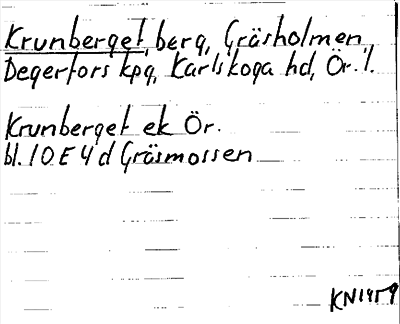 Krunberget, berg, Gräsholmen,
Degerfors kpg, Karlskoga hd, Ör. l.
Krunberget ek Ör.
bl. 10E 4d Gräsmossen
KN1959